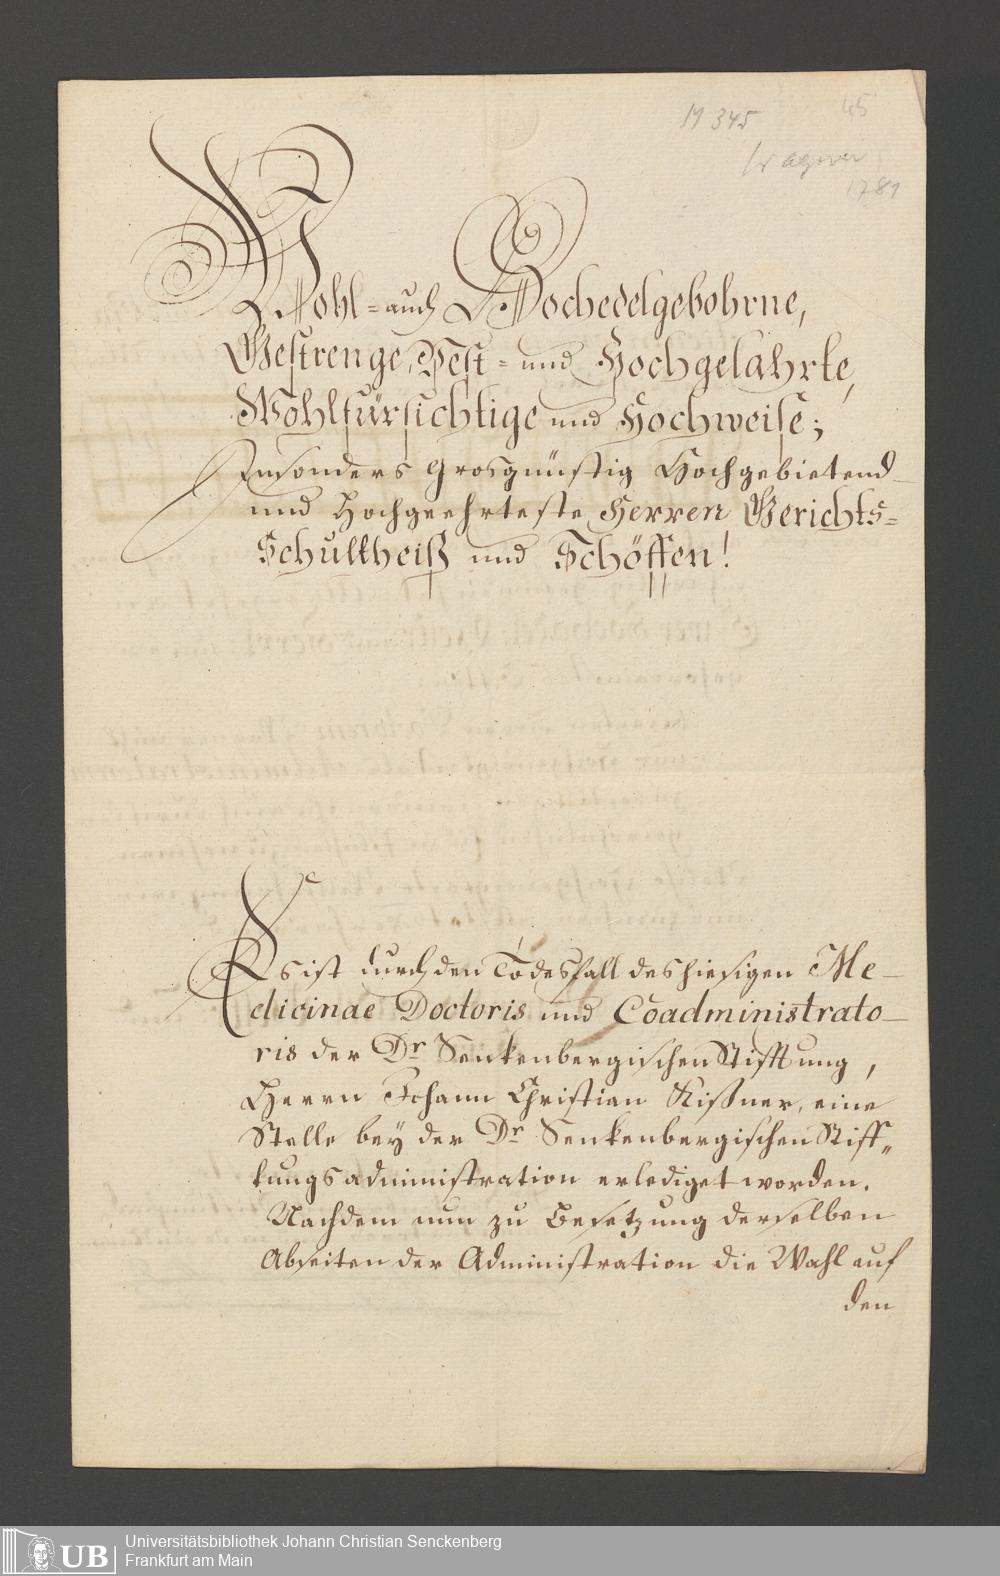 M 345
45
Wagner
1781
Wohl=auch Hochedelgebohrne,
Gestrenge, Vest= und Hochgelahrte,
Wohlfürsichtige und Hochweise;
Insonders Grosgünstig Hochgebietend-
und Hochgeehrteste Herren Gerichts=
Schultheiß und Schöffen!
Es ist durch den Todesfall des hiesigen Me-
dicinae Doctoris und Coadministrato-
ris der Dr Senkenbergischen Stifftung,
Herrn Johann Christian Kißner, eine
Stelle bey der Dr Senkenbergischen Stiff„
tungsadministration erlediget worden.
Nachdem nun zu Besetzung derselben
Abseiten der Administration die Wahl auf
den
UB
Universitätsbibliothek Johann Christian Senckenberg
Frankfurt am Main